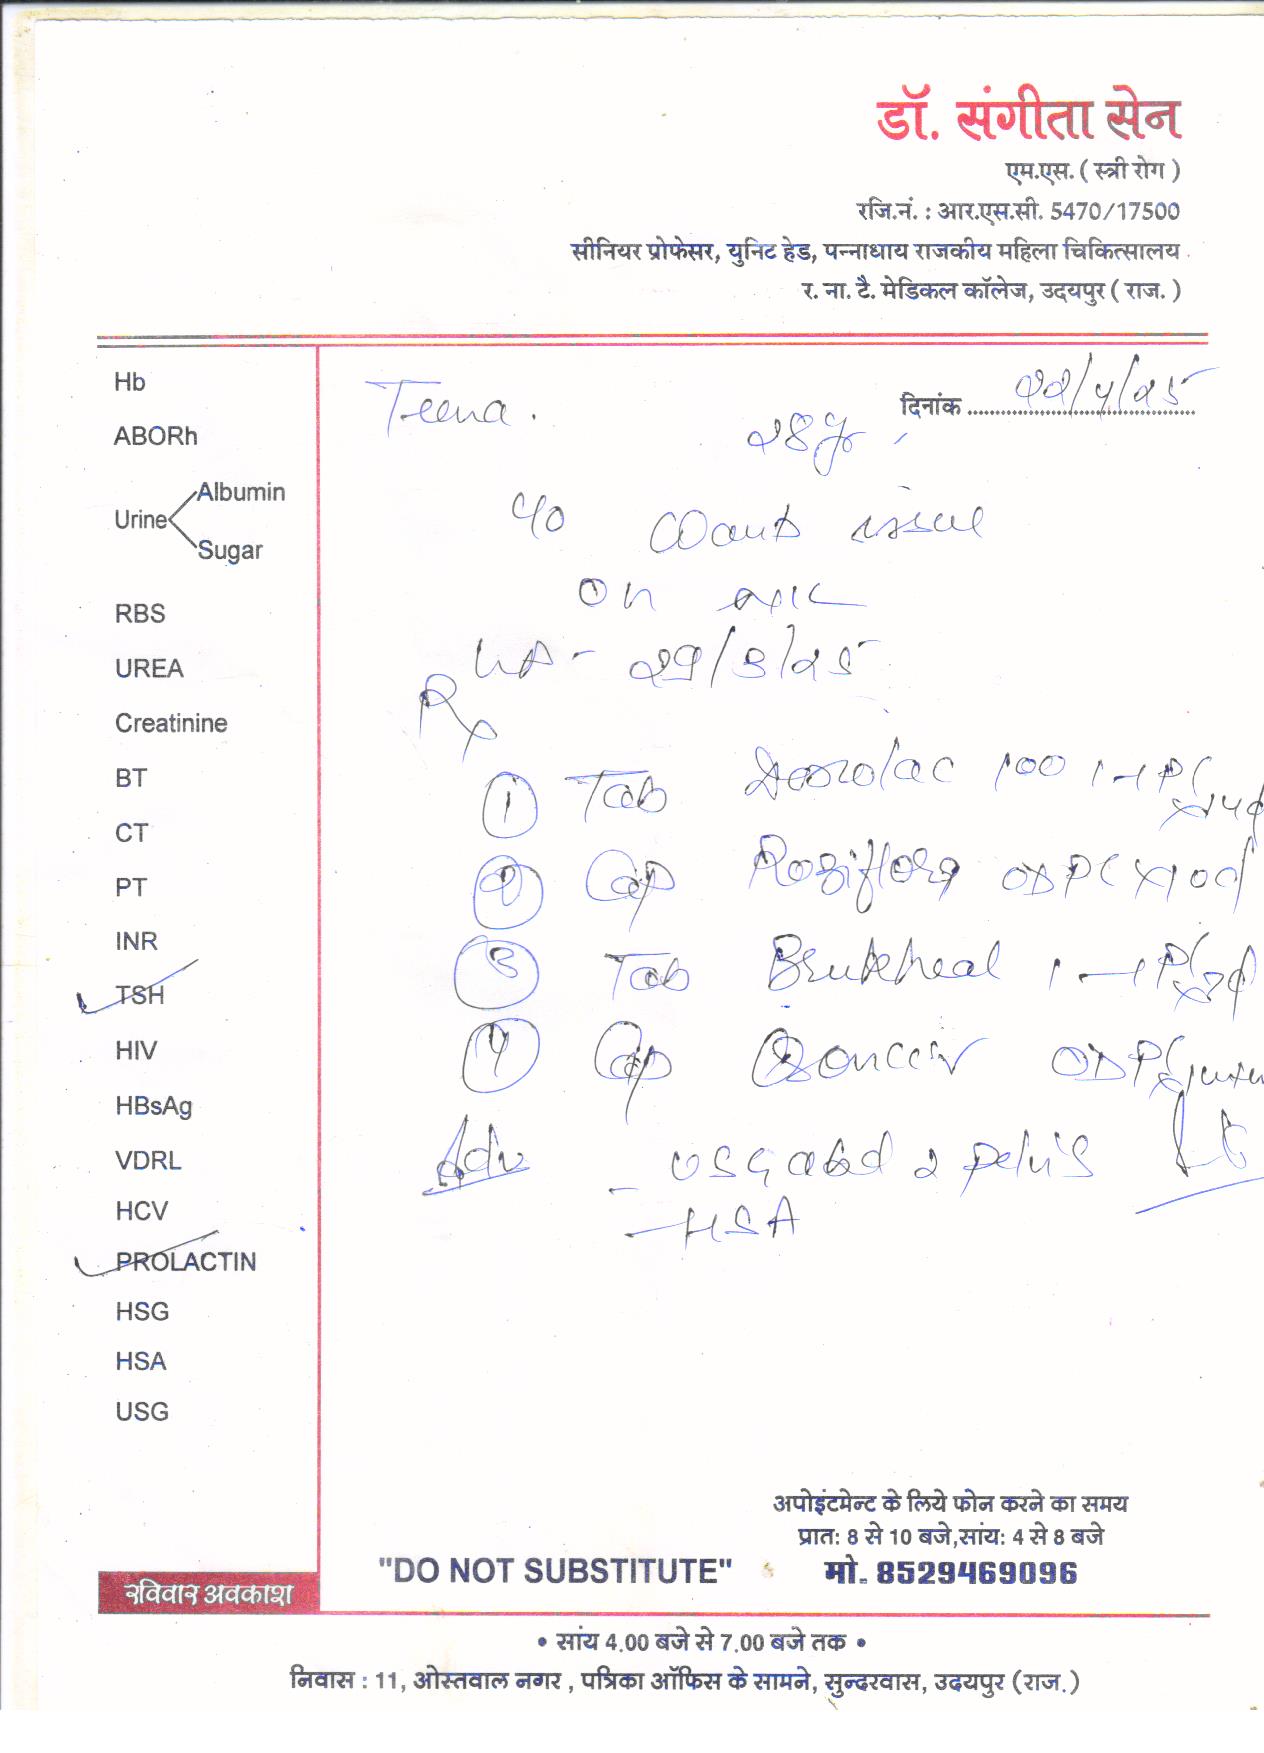 डॉ. संगीता सेन
एम.एस. ( स्त्री रोग )
रजि.नं. : आर.एस.सी. 5470/17500
सीनियर प्रोफेसर, युनिट हेड, पन्नाधाय राजकीय महिला चिकित्सालय
र. ना. टै. मेडिकल कॉलेज, उदयपुर ( राज. )
दिनांक 22/4/25
Teena.
28y
C/o Wants issue
On
LMP - 29/3/25
Rx
① Tab 100 1-1 PC
② Cap OD PC x 10d
③ Tab 1-1 PC
④ Cap OD PC
Adv - USG abd & pelvis
- HSA
Hb
ABORh
Urine Albumin
Sugar
RBS
UREA
Creatinine
BT
CT
PT
INR
TSH
HIV
HBsAg
VDRL
HCV
PROLACTIN
HSG
HSA
USG
अपोइंटमेन्ट के लिये फोन करने का समय
प्रात: 8 से 10 बजे,सांय: 4 से 8 बजे
"DO NOT SUBSTITUTE" मो. 8529469096
रविवार अवकाश
• सांय 4.00 बजे से 7.00 बजे तक •
निवास : 11, ओस्तवाल नगर , पत्रिका ऑफिस के सामने, सुन्दरवास, उदयपुर (राज.)